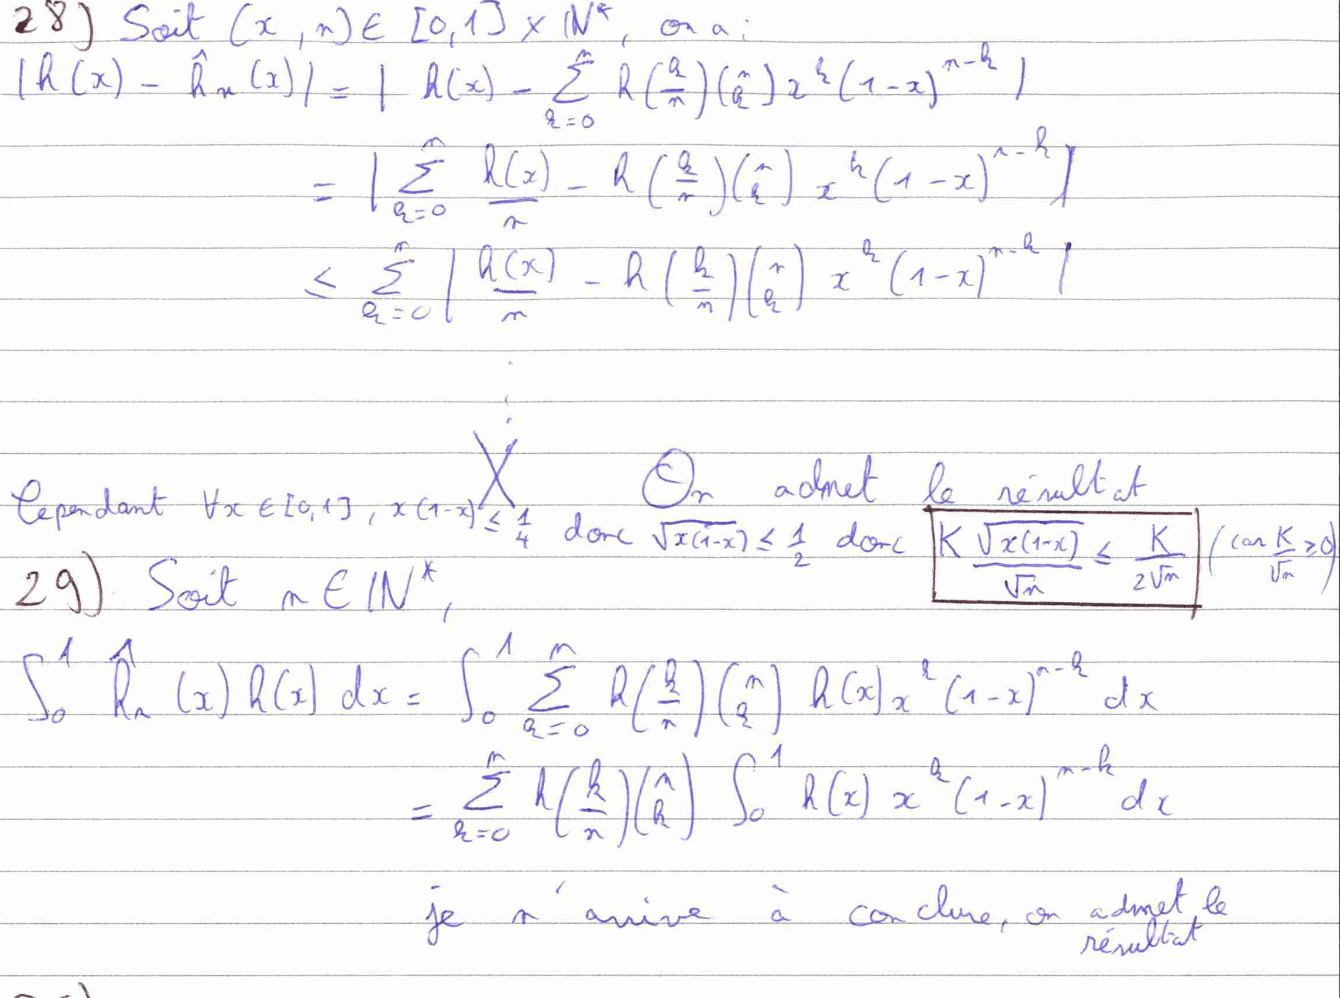 28) Soit (x, n) ∈ [0,1] × ℕ*, on a :
|h(x) - ĥₙ(x)| = | h(x) - ∑_{k=0}^{n} h(k/n) (n k) x^k (1-x)^{n-k} |
= | ∑_{k=0}^{n} h(x)/n - h(k/n) (n k) x^k (1-x)^{n-k} |
≤ ∑_{k=0}^{n} | h(x)/n - h(k/n) (n k) x^k (1-x)^{n-k} |
On admet le résultat
Cependant ∀x ∈ [0,1], x(1-x) ≤ 1/4 donc √(x(1-x)) ≤ 1/2 donc K √(x(1-x))/√n ≤ K/(2√n) (car K/√n ≥ 0)
29) Soit n ∈ ℕ*,
∫_0^1 ĥₙ(x) h(x) dx = ∫_0^1 ∑_{k=0}^{n} h(k/n) (n k) h(x) x^k (1-x)^{n-k} dx
= ∑_{k=0}^{n} h(k/n) (n k) ∫_0^1 h(x) x^k (1-x)^{n-k} dx
je n'arrive à conclure, on admet le
résultat